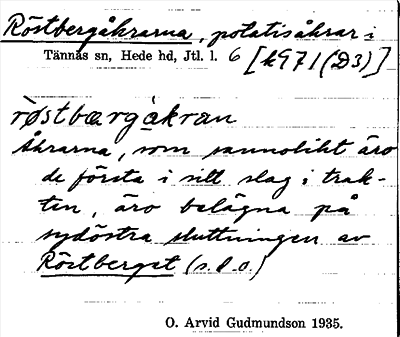 Röstbergåkrarna, potatisåkrar i
Tännäs sn, Hede hd, Jtl. l. 6 [k971(D3)]
røstbærgåkran
Åkrarna, som sannolikt äro
de första i sitt slag i trak-
ten, äro belägna på
sydöstra sluttningen av
Röstberget (s.d.o.)
O. Arvid Gudmundson 1935.